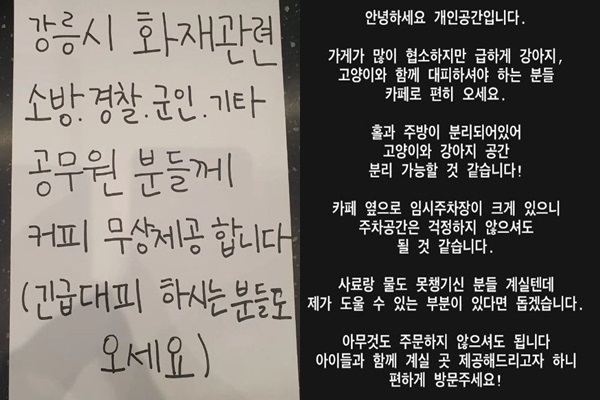 강릉시 화재관련
소방.경찰.군인.기타
공무원 분들께
커피 무상제공 합니다
(긴급대피 하시는분들도
오세요)
안녕하세요 개인공간입니다.
가게가 많이 협소하지만 급하게 강아지,
고양이와 함께 대피하셔야 하는 분들
카페로 편히 오세요.
홀과 주방이 분리되어있어
고양이와 강아지 공간
분리 가능할 것 같습니다!
카페 옆으로 임시주차장이 크게 있으니
주차공간은 걱정하지 않으셔도
될 것 같습니다.
사료랑 물도 못챙기신 분들 계실텐데
제가 도울 수 있는 부분이 있다면 돕겠습니다.
아무것도 주문하지 않으셔도 됩니다
아이들과 함께 계실 곳 제공해드리고자 하니
편하게 방문주세요!